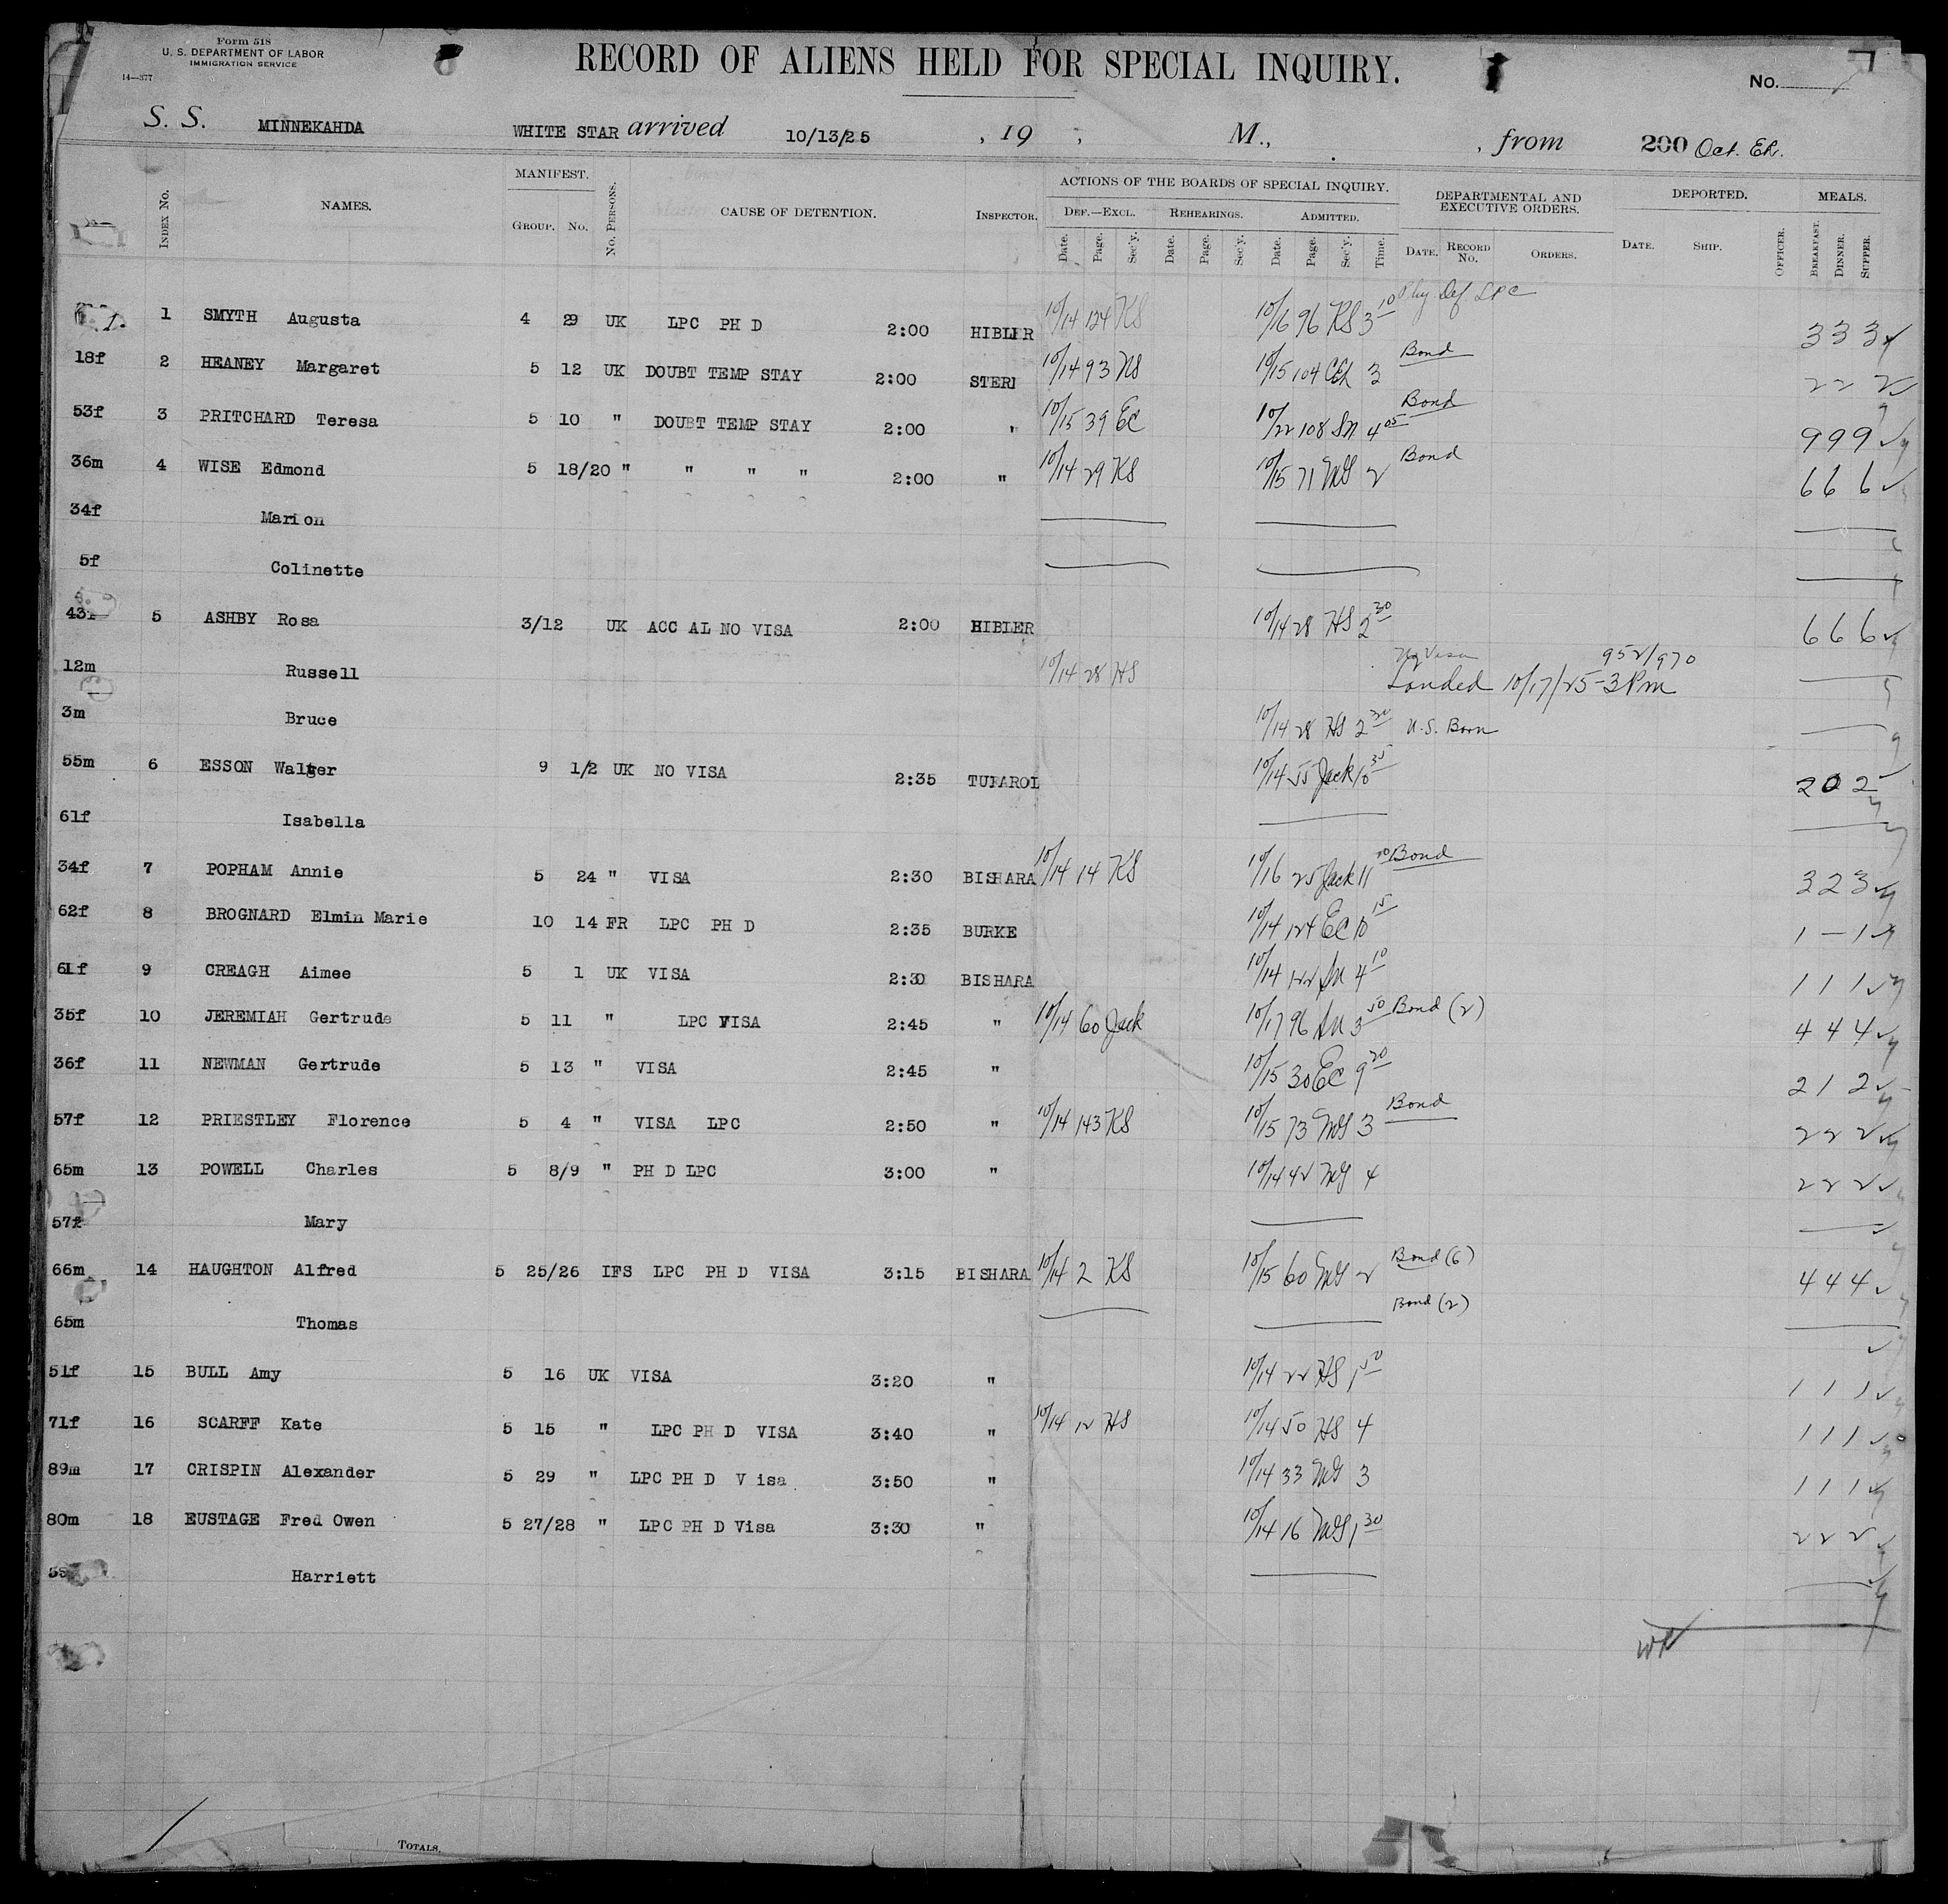 Form 518
U. S. DEPARTMENT OF LABOR
IMMIGRATION SERVICE
14—377
RECORD OF ALIENS HELD FOR SPECIAL INQUIRY.
No.
S. S. MINNEKAHDA WHITE STAR arrived 10/13/25 , 19 , M., , from 200 Oct. Eh.
INDEX No. NAMES. MANIFEST. GROUP. No. No. PERSONS. CAUSE OF DETENTION. INSPECTOR. ACTIONS OF THE BOARDS OF SPECIAL INQUIRY. DEPARTMENTAL AND EXECUTIVE ORDERS. DEPORTED. MEALS.
DEF.—EXCL. REHEARINGS. ADMITTED.
Date. Page. Sec'y. Date. Page. Sec'y. Date. Page. Sec'y. Time. DATE. RECORD No. ORDERS. DATE. SHIP. OFFICER. BREAKFAST. DINNER. SUPPER.
1 SMYTH Augusta 4 29 UK LPC PH D 2:00 HIBLER 10/14 124 KS 10/16 96 KS 3 10 Phy Def LPC 3 3 3
18f 2 HEANEY Margaret 5 12 UK DOUBT TEMP STAY 2:00 STERI 10/14 93 10/15 104 CEh 3 Bond 2 2 2
53f 3 PRITCHARD Teresa 5 10 " DOUBT TEMP STAY 2:00 " 10/15 39 EC 10/22 108 Sn 4 05 Bond 9 9 9
36m 4 WISE Edmond 5 18/20 " " " " 2:00 " 10/14 29 KS 10/15 71 MS 2 Bond 6 6 6
34f Marion
5f Colinette
43f 5 ASHBY Rosa 3/12 UK ACC AL NO VISA 2:00 HIBLER 10/14 28 HS 2 30 6 6 6
12m Russell 10/14 28 HS No Visa 952/970
Landed 10/17/25-3 Pm
3m Bruce 10/14 28 HS 2 30 U.S. Born
55m 6 ESSON Walter 9 1/2 UK NO VISA 2:35 TUFAROL 10/14 55 Jack 10 35 2 0 2
61f Isabella
34f 7 POPHAM Annie 5 24 " VISA 2:30 BISHARA 10/14 14 KS 10/16 25 Jack 11 10 Bond 3 2 3
62f 8 BROGNARD Elmin Marie 10 14 FR LPC PH D 2:35 BURKE 10/14 124 EC 10 15 1 — 1
61f 9 CREAGH Aimee 5 1 UK VISA 2:30 BISHARA 10/14 122 Sn 4 10 1 1 1
35f 10 JEREMIAH Gertrude 5 11 " LPC VISA 2:45 " 10/14 60 Jack 10/17 96 Sn 3 50 Bond (2) 4 4 4
36f 11 NEWMAN Gertrude 5 13 " VISA 2:45 " 10/15 30 EC 9 20 2 1 2
57f 12 PRIESTLEY Florence 5 4 " VISA LPC 2:50 " 10/14 143 KS 10/15 73 MS 3 Bond 2 2 2
65m 13 POWELL Charles 5 8/9 " PH D LPC 3:00 " 10/14 42 MS 4 2 2 2
57f Mary
66m 14 HAUGHTON Alfred 5 25/26 IFS LPC PH D VISA 3:15 BISHARA 10/14 2 KS 10/15 60 MS 2 Bond (6) 4 4 4
Bond (2)
65m Thomas
51f 15 BULL Amy 5 16 UK VISA 3:20 " 10/14 22 HS 1 50 1 1 1
71f 16 SCARFF Kate 5 15 " LPC PH D VISA 3:40 " 10/14 12 HS 10/14 50 HS 4 1 1 1
89m 17 CRISPIN Alexander 5 29 " LPC PH D Visa 3:50 " 10/14 33 MS 3 1 1 1
80m 18 EUSTAGE Fred Owen 5 27/28 " LPC PH D Visa 3:30 " 10/14 16 MS 1 30 2 2 2
Harriett
TOTALS.